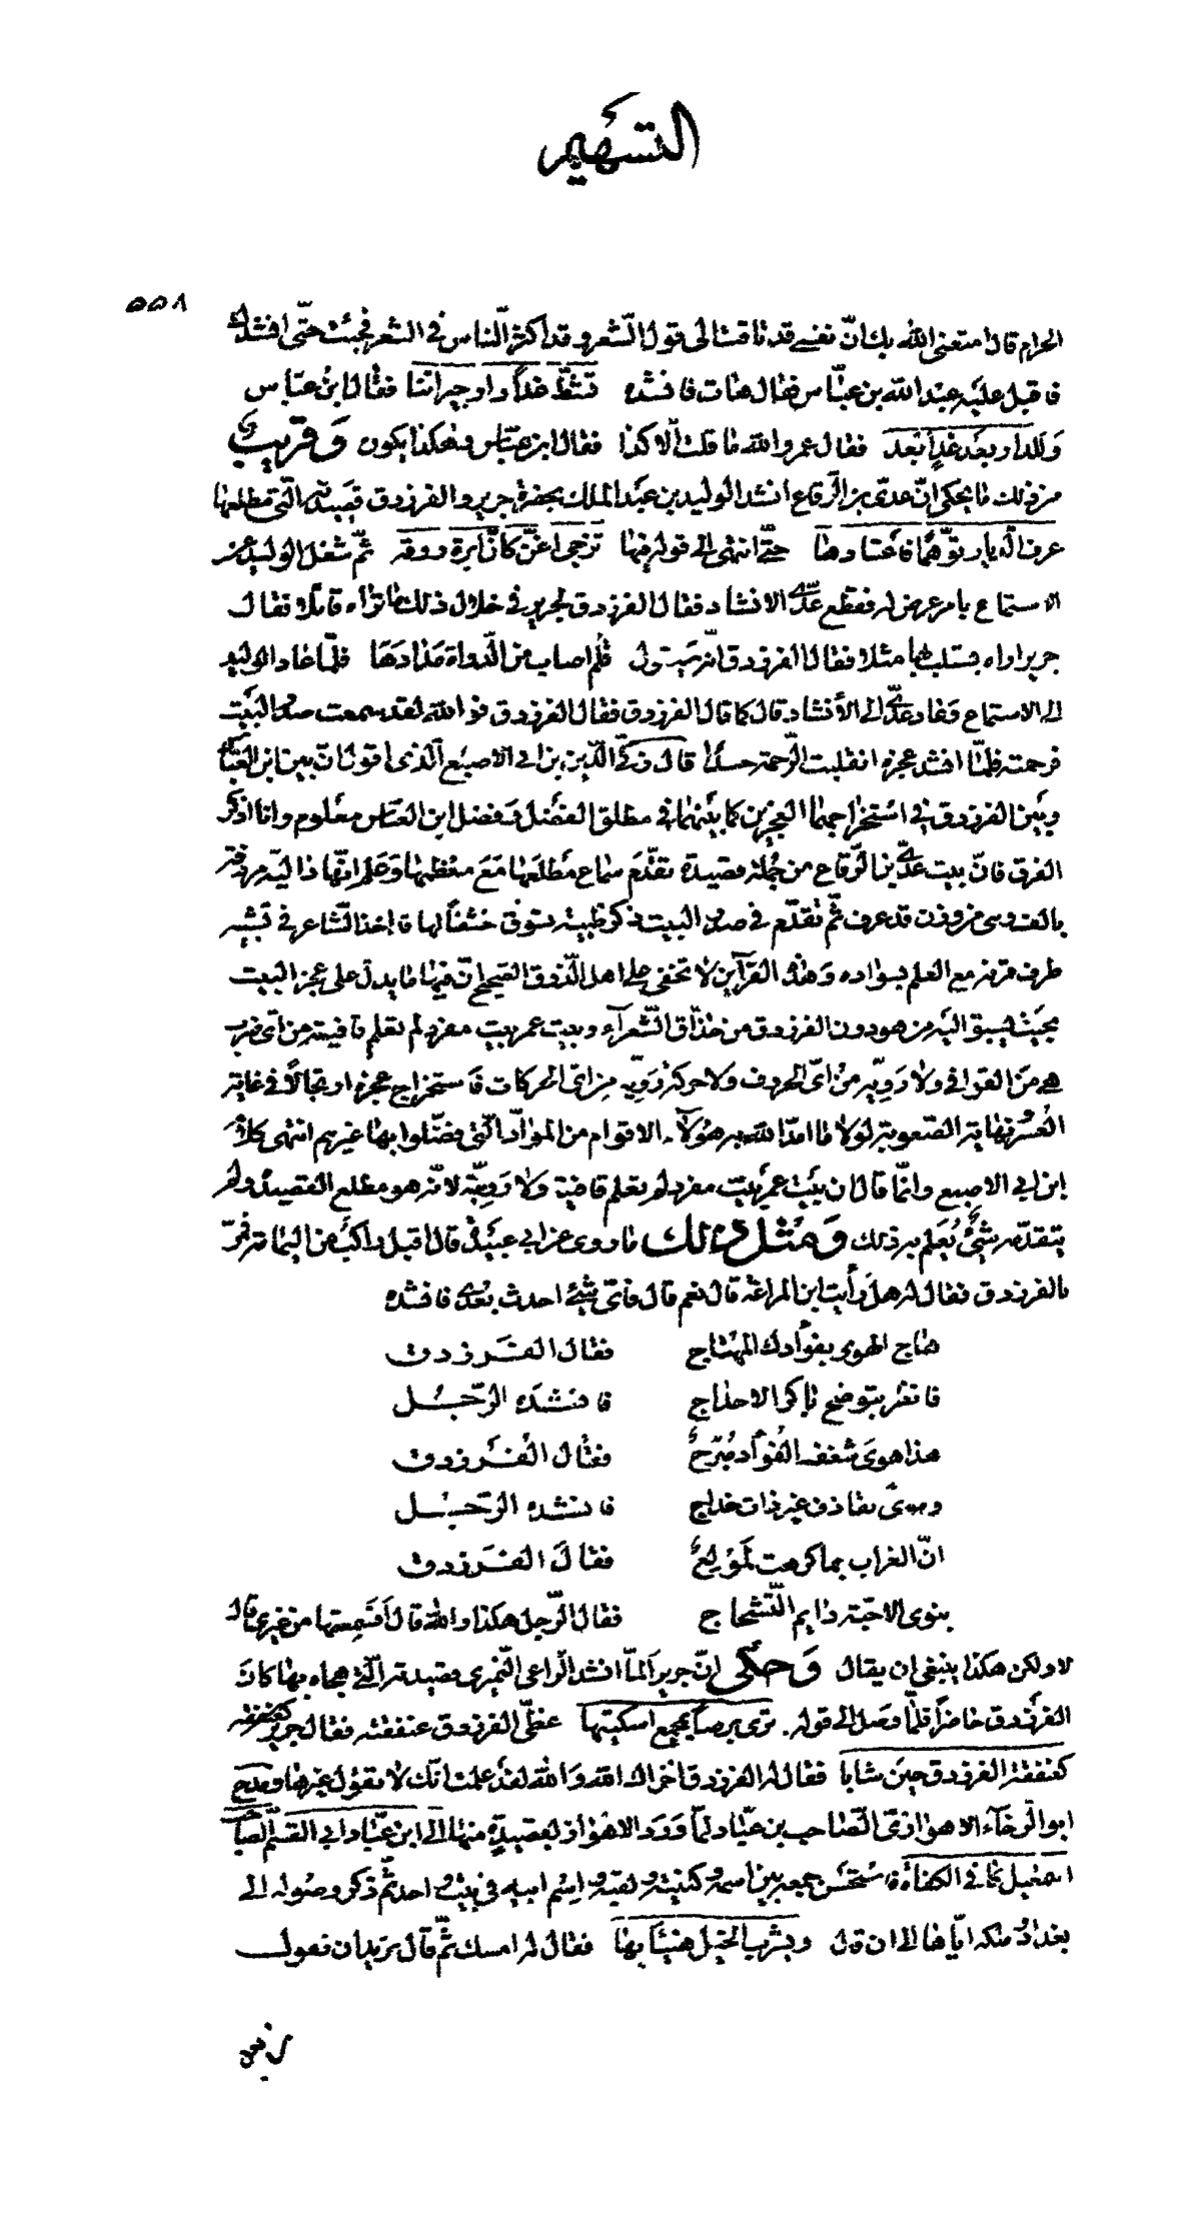 التسهيم
٥٥٨
الحرام قال امتعنى الله بك انّ نفسى قد تاقت الى قول الشعر وقد اكثر النّاس فى الشعر فجئت حتّى انشدك
فاقبل عليه عبد الله بن عبّاس فقال هات فانشده تشطّ غداً دار جيراننا فقال ابن عبّاس
وللدار بعد غدٍ ابعد فقال عمر والله ما قلت الّا كذا فقال ابن عبّاس وهكذا يكون وقريب
من ذلك ما يحكى انّ عدىّ بن الرّقاع انشد الوليد بن عبد الملك بحضرة جرير والفرزدق قصيدته الّتى مطلعها
عرف الدّيار توهّماً فاعتادها حتّى انتهى الى قوله فيها تزجى اغنّ كانّ ابرة روقه ثمّ شغل الوليد عن
الاستماع بامر عرض له فقطع عدىّ الانشاد فقال الفرزدق لجرير فى خلال ذلك ما تراه قائلا فقال
جرير اراه يستلب بها مثلا فقال الفرزدق انّه سيقول قلم اصاب من الدّواة مدادها فلمّا عاد الوليد
الى الاستماع وعاد عدىّ الى الأنشاد قال كما قال الفرزدق فقال الفرزدق فو الله لقد سمعت صدر البيت
فرحمته فلمّا انشد عجزه انقلبت الرّحمة حسدا قال زكىّ الدّين بن ابى الاصبع الّذى اقول انّ بين ابن العبّاس
وبين الفرزدق فى استخراجهما العجزين كما بينهما فى مطلق الفضل وفضل ابن العبّاس معلوم وانا اذكر
الفرق فانّ بيت عدىّ بن الرّقاع من جملة قصيدة تقدّم سماع مطلعها مع معظمها وعلم انّها داليّة مردفة
بالف وهى من وزن قد عرف ثمّ تقدّم فى صدر البيت ذكر ظبية تسوق خشفاً لها قد اخذ الشّاعر فى تشبيه
طرف قرنه مع العلم بسواده وهذه القرآين لا تخفى على اهل الذّوق الصّحيح انّ فيها ما يدلّ على عجز البيت
بحيث يسبق اليه من هو دون الفرزدق من حذّاق الشّعراء وبيت عمر بيت مفرد لم تعلم قافيته من اىّ ضرب
هى من القوافى ولا رويّه من اىّ الحروف ولا حركة رويّه من اىّ الحركات فاستخراج عجزه ارتجالاً فى غاية
العسر ونهاية الصّعوبة لولا ما امدّ الله به هؤلاء الاقوام من الموادّ الّتى فضّلوا بها غيرهم انتهى كلام
ابن ابى الاصبع وانّما قال انّ بيت عمر بيت مفرد لم تعلم قافية ولا رويّه لانّه هو مطلع القصيدة ولم
يتقدّمه شئ يعلم به ذلك ومثل ذلك ما روى عن ابى عبيدة قال اقبل راكب من اليمامة فمرّ
بالفرزدق فقال له هل رأيت ابن المراغة قال نعم قال فاىّ شئ احدث بعدى فانشده
هاج الهوى بفؤادك المهتاج فقال الفرزدق
فانظر بتوضح باكر الاحداج فانشده الرّجل
هذا هوى شغف الفؤاد مبرّح فقال الفرزدق
ونوى تقاذف غير ذات خلاج فانشده الرّجل
انّ الغراب بما كرهت لمولع فقال الفرزدق
بنوى الاحبّة دايم التّشحاج فقال الرّجل هكذا والله قال أفسمعتها من غيرى قال
لا ولكن هكذا ينبغى ان يقال وحكى انّ جريراً لمّا انشد الرّاعى النّميرى قصيدته الّتى هجاه بها كان
الفرزدق حاضراً فلمّا وصل الى قوله ترى برصاً بمجمع اسكتيها غطّى الفرزدق عنفقته فقال جرير كعنفقة
كعنفقة الفرزدق حين شابا فقال له الفرزدق اخزاك الله والله لقد علمت انّك لا تقول غيرها ومدح
ابو الرّخاء الاهوازىّ الصّاحب بن عبّاد لمّا ورد الاهواز بقصيدة منها الى ابن عبّاد ابى القسم الصّاحب
اسمعيل كافى الكفاة فاستحسن جمعه بين اسمه وكنيته ولقبه واسم ابيه فى بيت واحد ثمّ ذكر وصوله الى
بغداد وملكه ايّاها الى ان قال ويشرب الخيل هنيئاً بها فقال له امسك ثمّ قال تريد ان تقول